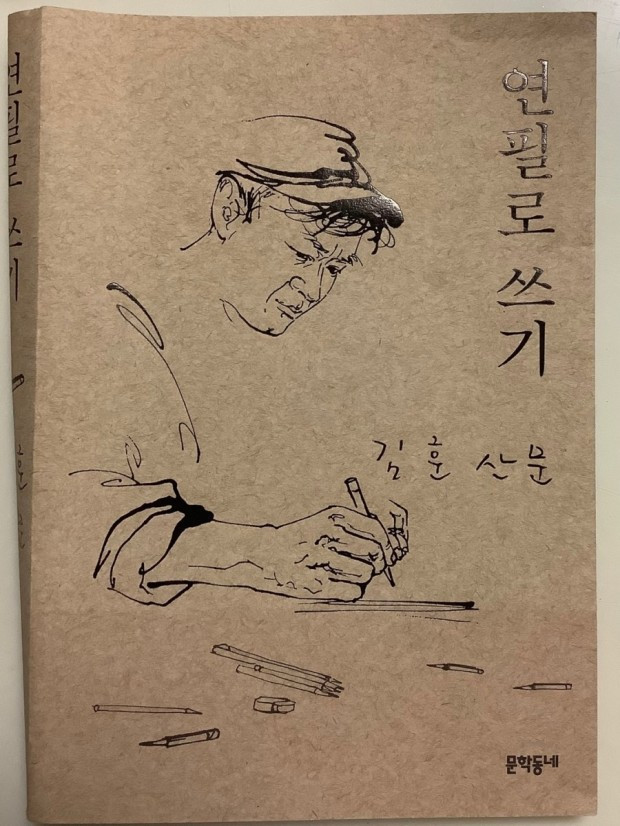 연필로 쓰기
김훈 산문
문학동네
연필로 쓰기
훈